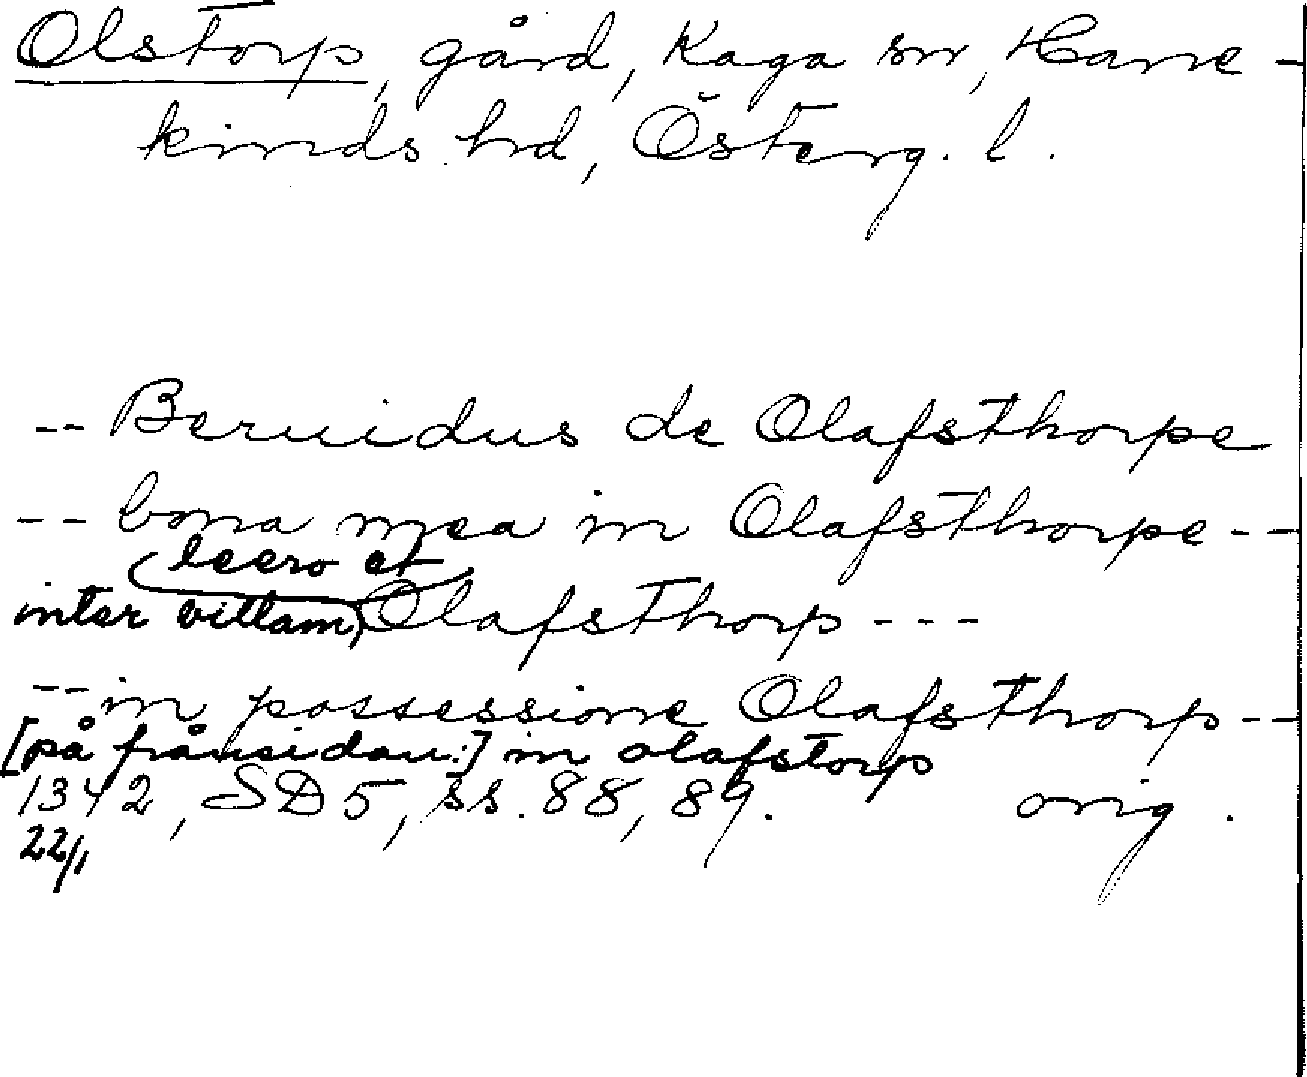 Olstorp, gård, Kaga sn, Hane-
kinds hd, Österg. l.
-- Beruidus de Olafsthorpe
-- bona mea in Olafsthorpe --
leero et
inter villam Olafsthorp ---
-- in possessione Olafsthorp --
[på frånsidan:] in olafstorp
1342, SD 5, ss. 88, 89. orig.
22/1